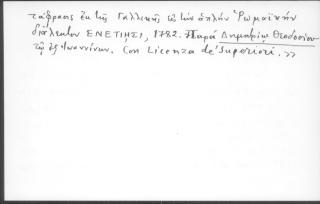 τάφρασις ἐκ τῆς Γαλλικῆς εἰς τὴν ἁπλῆν Ῥωμαϊκὴν
διάλεκτον ΕΝΕΤΙΗΣΙ, 1782. Παρὰ Δημητρίῳ Θεοδοσίου
τῷ ἐξ Ἰωαννίνων. Con Licenza de' Superiori. >>